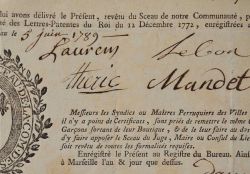 lui avons délivré le Présent, revêtu du Sceau de notre Communauté,
des Lettres-Patentes du Roi du 12 Décembre 1772, enregistrées
le 5 Juin 1789
Laurens Le Cour
Theric Mandet
Messieurs les Syndics ou Maîtres Perruquiers des Villes
il n'y a point de Certificat, sont priés de remettre le même
Garçons sortant de leur Boutique, & de leur faire au dos
d'y faire apposer le Sceau du Juge, Maire ou Consul du Lieu
vois de toutes les formalités requises.
Enrégistré le Présent au Registre du Bureau.
à Marseille l'an & jour que dessus.